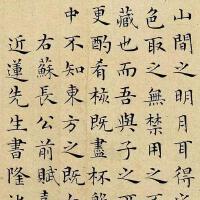 山間之明月耳得之
色取之無禁用之
藏也而吾與子之
更酌肴核既盡杯
中不知東方之既
右蘇長公前賦
近蓮先生書隆